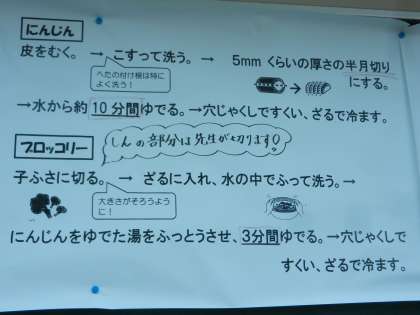 にんじん
皮をむく。 → こすって洗う。 → 5mm くらいの厚さの半月切り
にする。
へたの付け根は特に
よく洗う！
→水から約10分間ゆでる。→穴じゃくしですくい、ざるで冷ます。
ブロッコリー
しんの部分は先生が切ります!
子ふさに切る。 → ざるに入れ、水の中でふって洗う。→
大きさがそろうよう
に！
にんじんをゆでた湯をふっとうさせ、3分間ゆでる。→穴じゃくしで
すくい、ざるで冷ます。